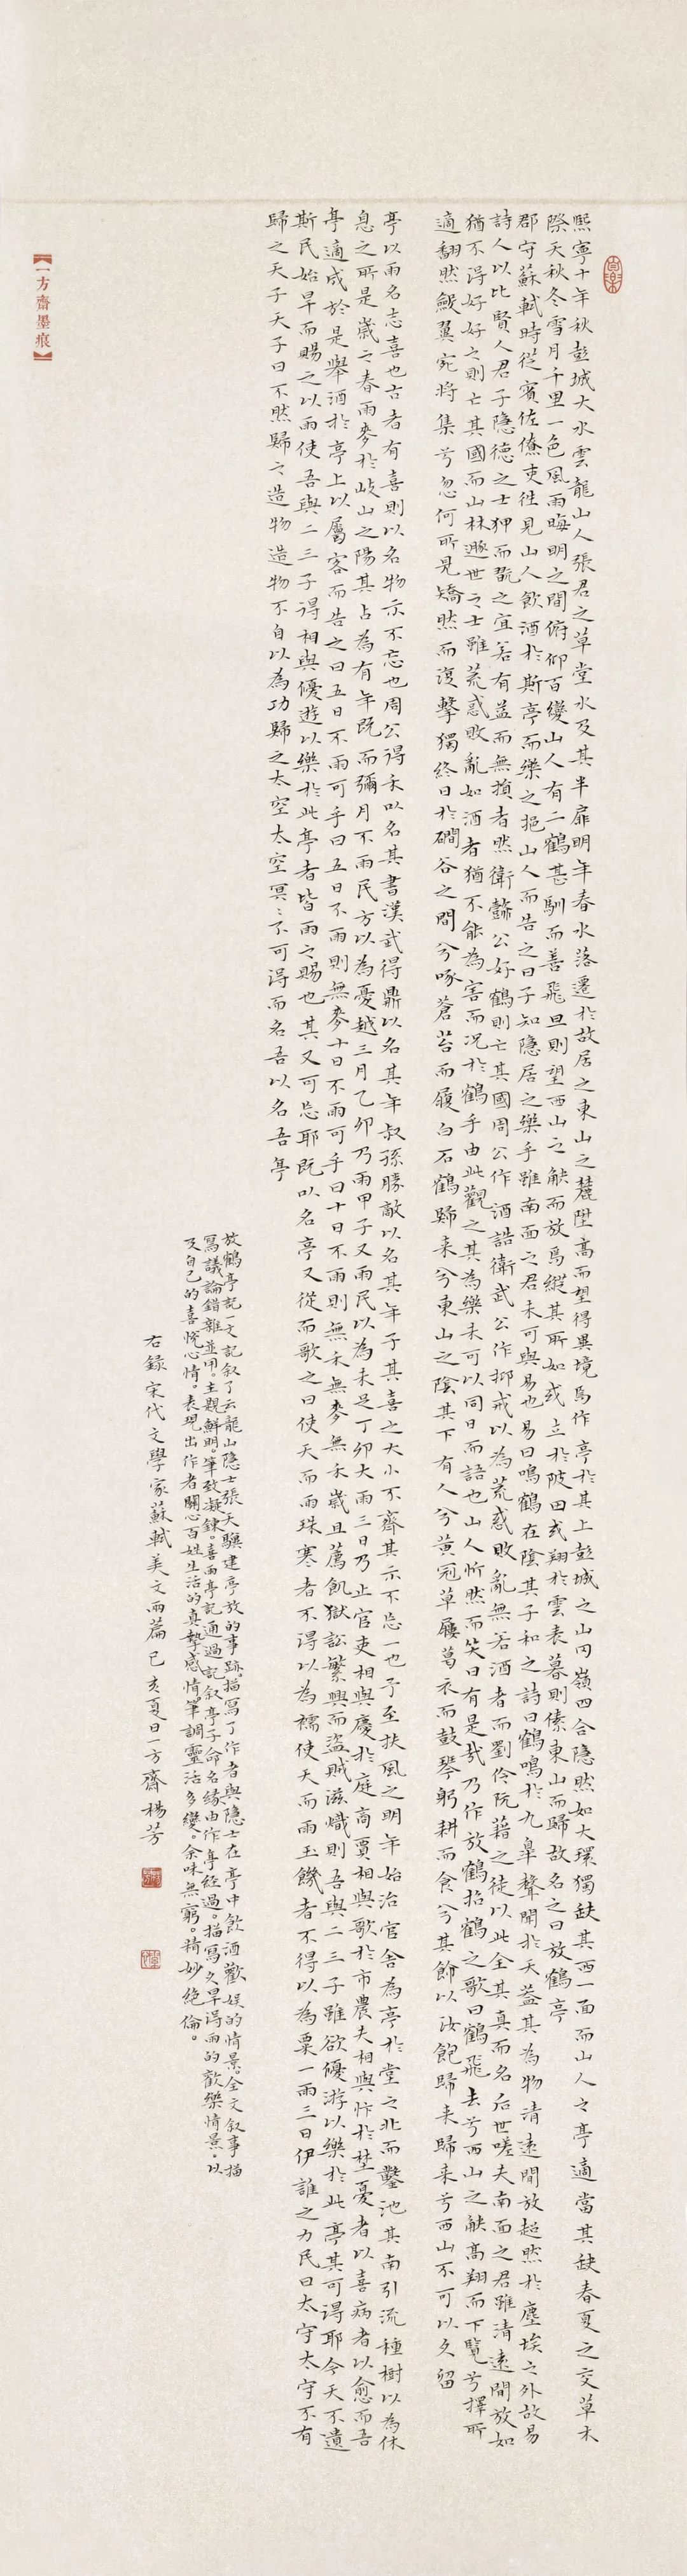 熙寧十年秋彭城大水雲龍山人張君之草堂水及其半扉明年春水落遷於故居之東東山之麓陞高而望得異境焉作亭於其上彭城之山岡嶺四合隱然如大環獨缺其西一面而山人之亭適當其缺春夏之交草木
際天秋冬雪月千里一色風雨晦明之間俯仰百變山人有二鶴甚馴而善飛旦則望西山之缺而放焉縱其所如或立於陂田或翔於雲表暮則傃東山而歸故名之曰放鶴亭
郡守蘇軾時從賓佐僚吏往見山人飲酒於斯亭而樂之挹山人而告之曰子知隱居之樂乎雖南面之君未可與易也易曰鳴鶴在陰其子和之詩曰鶴鳴於九皋聲聞於天蓋其為物清遠閒放超然於塵埃之外故易
詩人以比賢人君子隱德之士狎而翫之宜若有益而無損者然衛懿公好鶴則亡其國周公作酒誥衛武公作抑戒以為荒惑敗亂無若酒者而劉伶阮籍之徒以此全其真而名后世嗟夫南面之君雖清遠閒放如
猶不得好好之則亡其國而山林遯世之士雖荒惑敗亂如酒者猶不能為害而況於鶴乎由此觀之其為樂未可以同日而語也山人忻然而笑曰有是哉乃作放鶴招鶴之歌曰鶴飛去兮西山之缺高翔而下覽兮擇所
適翻然斂翼宛將集兮忽何所見矯然而復擊獨終日於磵谷之間兮啄蒼苔而履白石鶴歸来兮東山之陰其下有人兮黃冠草屨葛衣而鼓琴躬耕而食兮其餘以汝飽歸来歸来兮西山不可以久留
亭以雨名志喜也古者有喜則以名物示不忘也周公得禾以名其書漢武得鼎以名其年叔孫勝敵以名其子其喜之大小不齊其示不忘一也予至扶風之明年始治官舍為亭於堂之北而鑿池其南引流種樹以為休
息之所是歲之春雨麥於岐山之陽其占為有年既而彌月不雨民方以為憂越三月乙卯乃雨甲子又雨民以為未足丁卯大雨三日乃止官吏相與慶於庭商賈相與歌於市農夫相與忭於埜憂者以喜病者以愈而吾
亭適成於是舉酒於亭上以屬客而告之曰五日不雨可乎曰五日不雨則無麥十日不雨可乎曰十日不雨則無禾無麥無禾歲且薦飢獄訟繁興而盜賊滋熾則吾與二三子雖欲優游以樂於此亭其可得耶今天不遺
斯民始旱而賜之以雨使吾與二三子得相與優遊以樂於此亭者皆雨之賜也其又可忘耶既以名亭又從而歌之曰使天而雨珠寒者不得以為襦使天而雨玉饑者不得以為粟一雨三日伊誰之力民曰太守太守不有
歸之天子天子曰不然歸之造物造物不自以為功歸之太空太空冥〻不可得而名吾以名吾亭
放鶴亭記一文記敘了云龍山隱士張天驥建亭放的事跡。描寫了作者與隱士在亭中飲酒歡娛的情景。全文敘事描
寫議論錯雜並用。主題鮮明。筆致凝鍊。喜雨亭記通過記敘亭子命名緣由作亭經過。描寫久旱得雨的歡樂情景。以
及自己的喜悅心情。表現出作者關心百姓生活的真摯感情。筆調靈活多變。余味無窮。精妙絕倫。
右錄宋代文學家蘇軾美文兩篇己亥夏日一方齋楊芳
【一方齋墨痕】